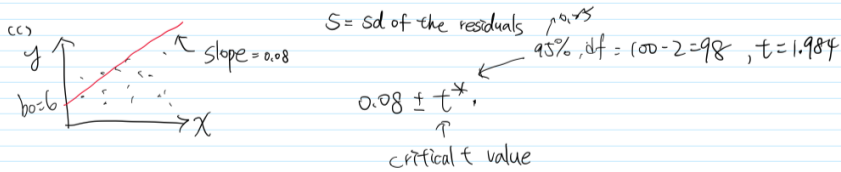 (c)
y
slope = 0.08
b0=6
x
S = sd of the residuals
95%, df = 100-2=98, t=1.984
0.08 ± t*.
critical t value